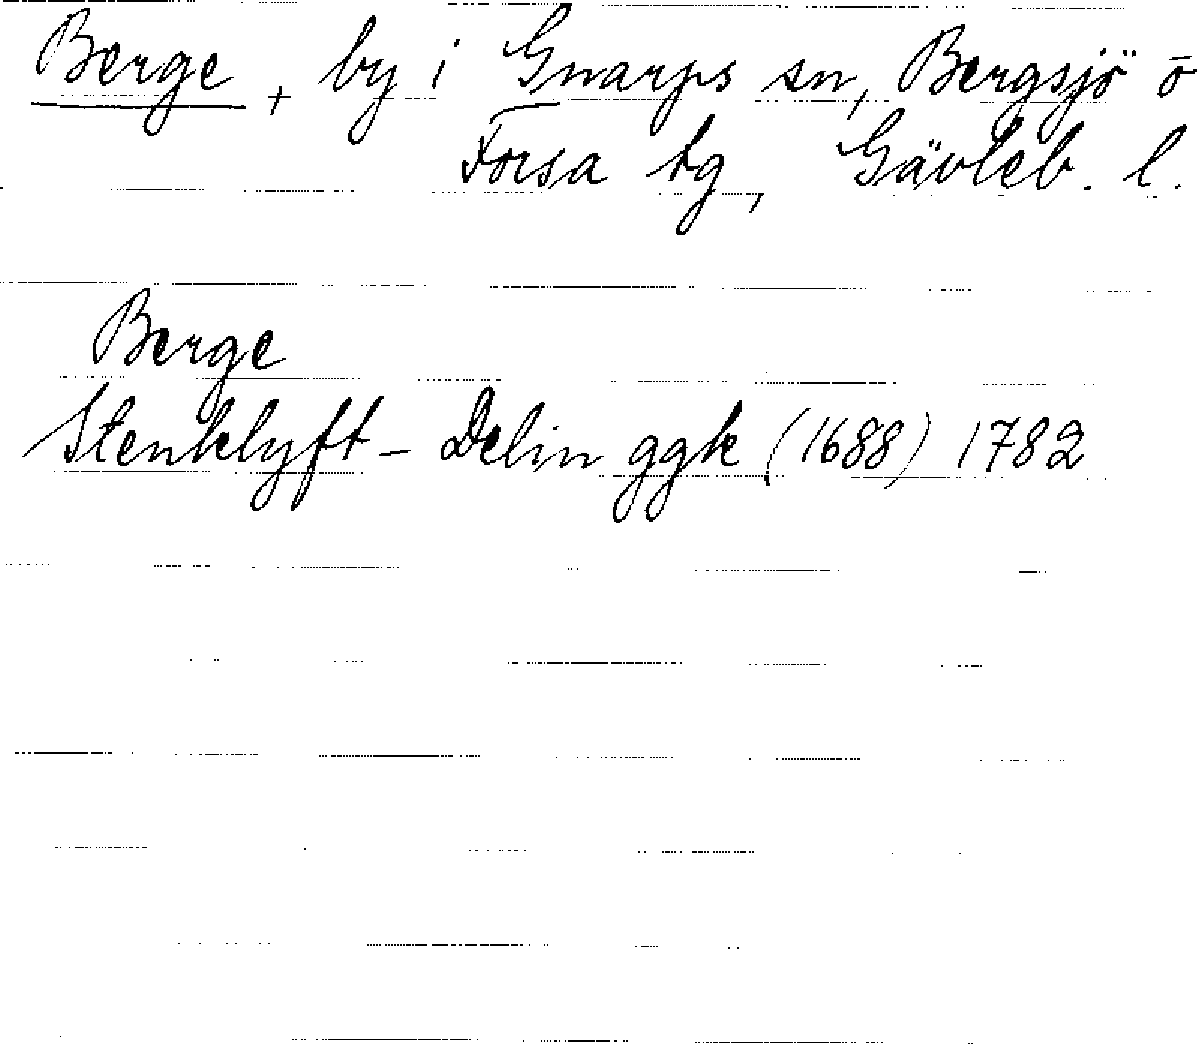 Berge, by i Gnarps sn, Bergsjö o
Forsa tg, Gävleb. l.
Berge
Stenklyft - Delin ggk (1688) 1782